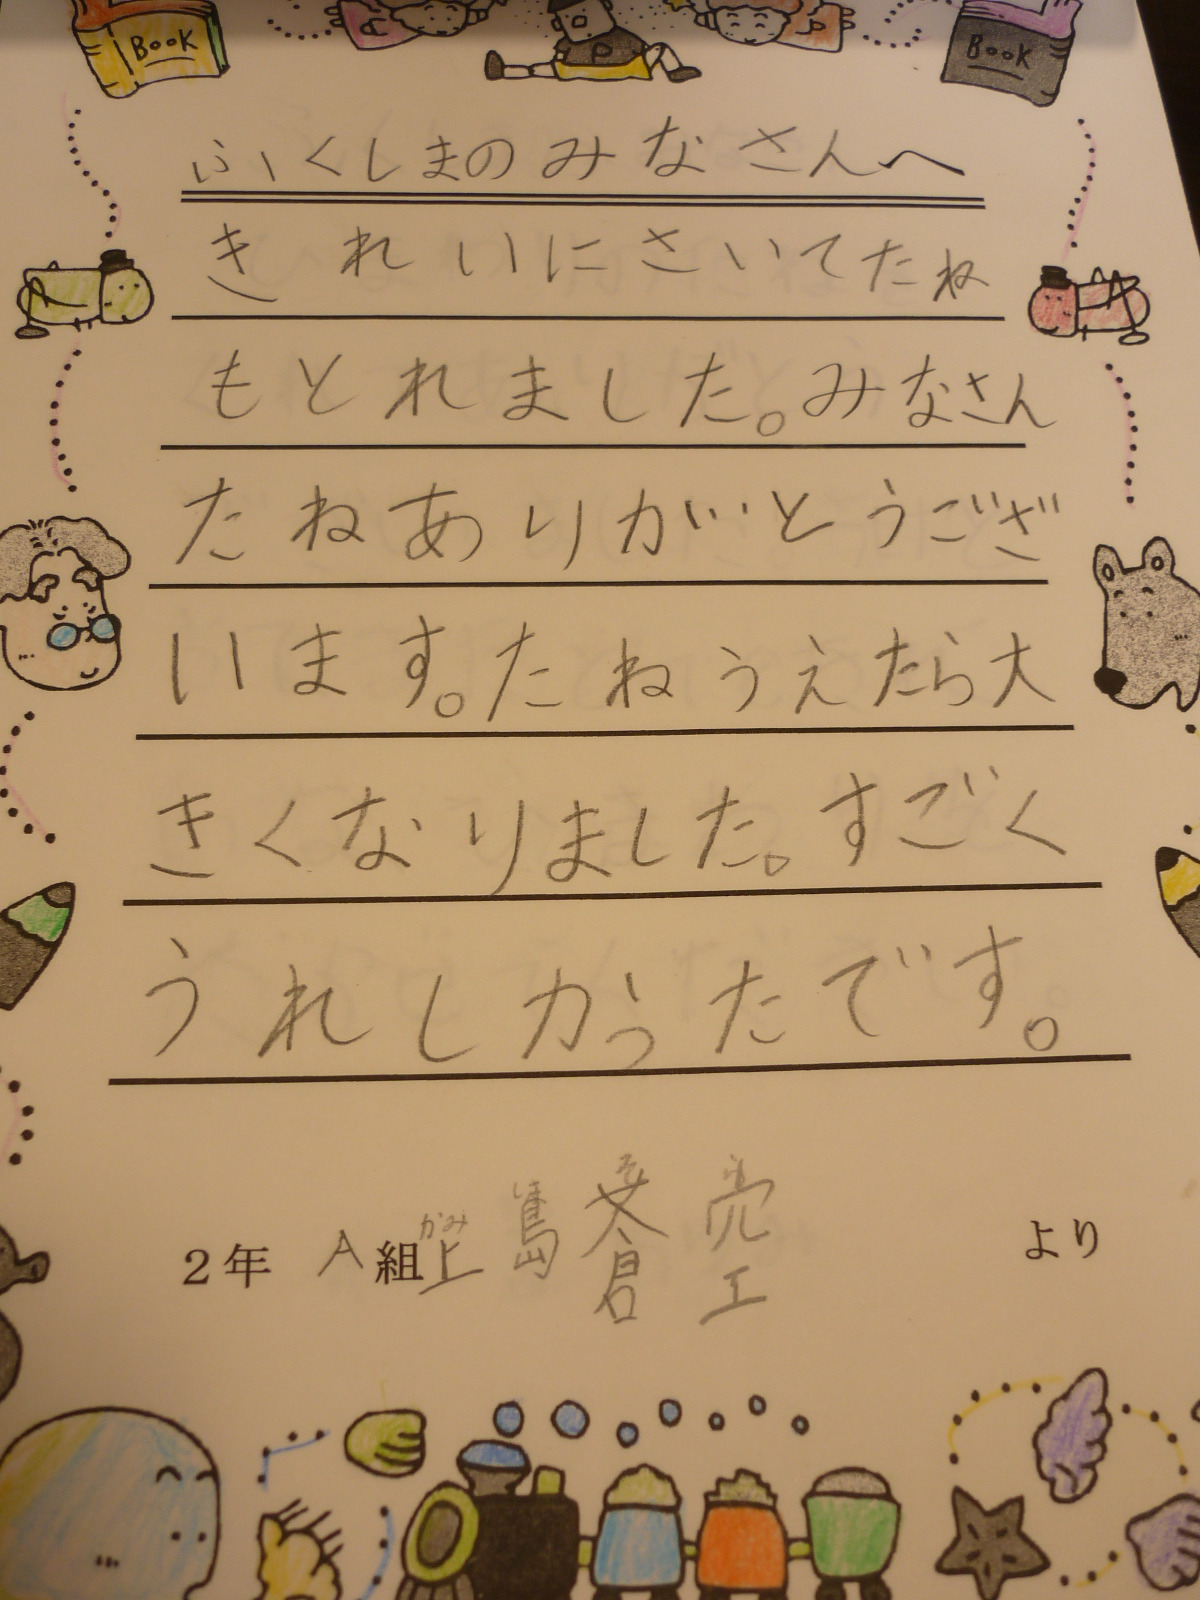 BOOK
BOOK
ふくしまのみなさんへ
きれいにさいてたね
もとれました。みなさん
たねありがとうござ
います。たねうえたら大
きくなりました。すごく
うれしかったです。
2年 A組 かみ 上
より